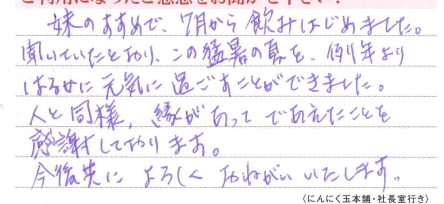 ご利用になったご感想をお聞かせ下さい。
妹のすすめで、7月から飲みはじめました。
聞いていたとおり、この猛暑の夏を、例年より
はるかに元気に過ごすことができました。
人と同様、縁があって であえたことを
感謝しております。
今後共に よろしく おねがいいたします。
(にんにく玉本舗・社長室行き)